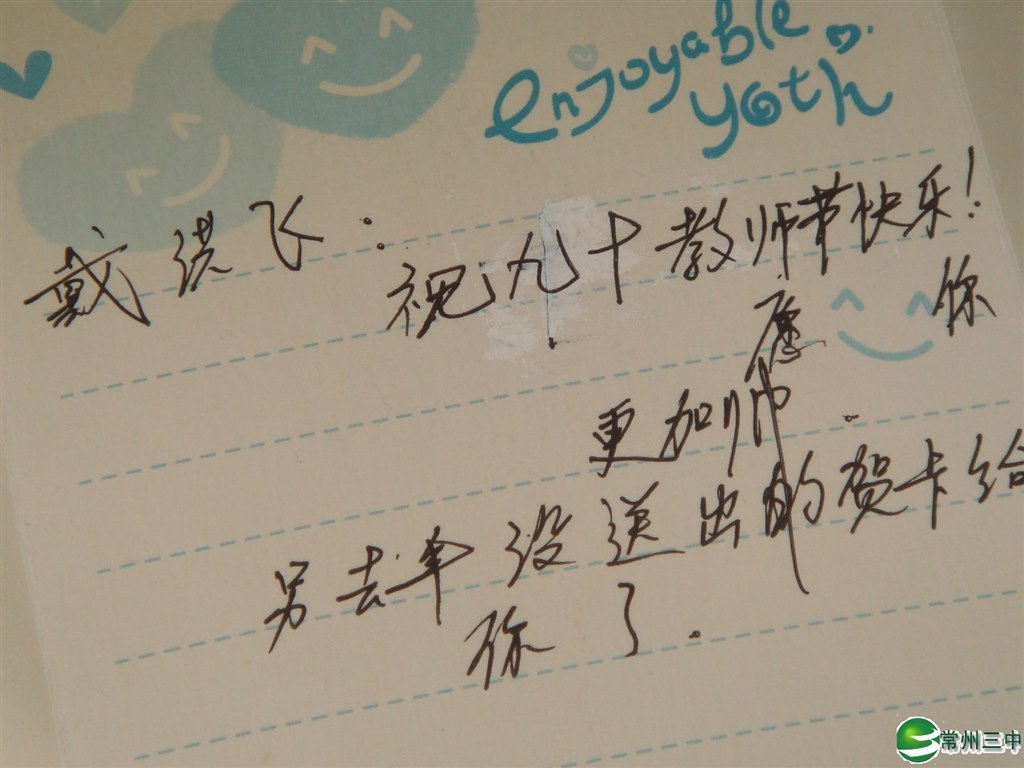 enjoyable
yoth
戴洪飞：
祝九十教师节快乐！
愿你
更加帅.
另去年没送出的贺卡给
你了.
常州三中